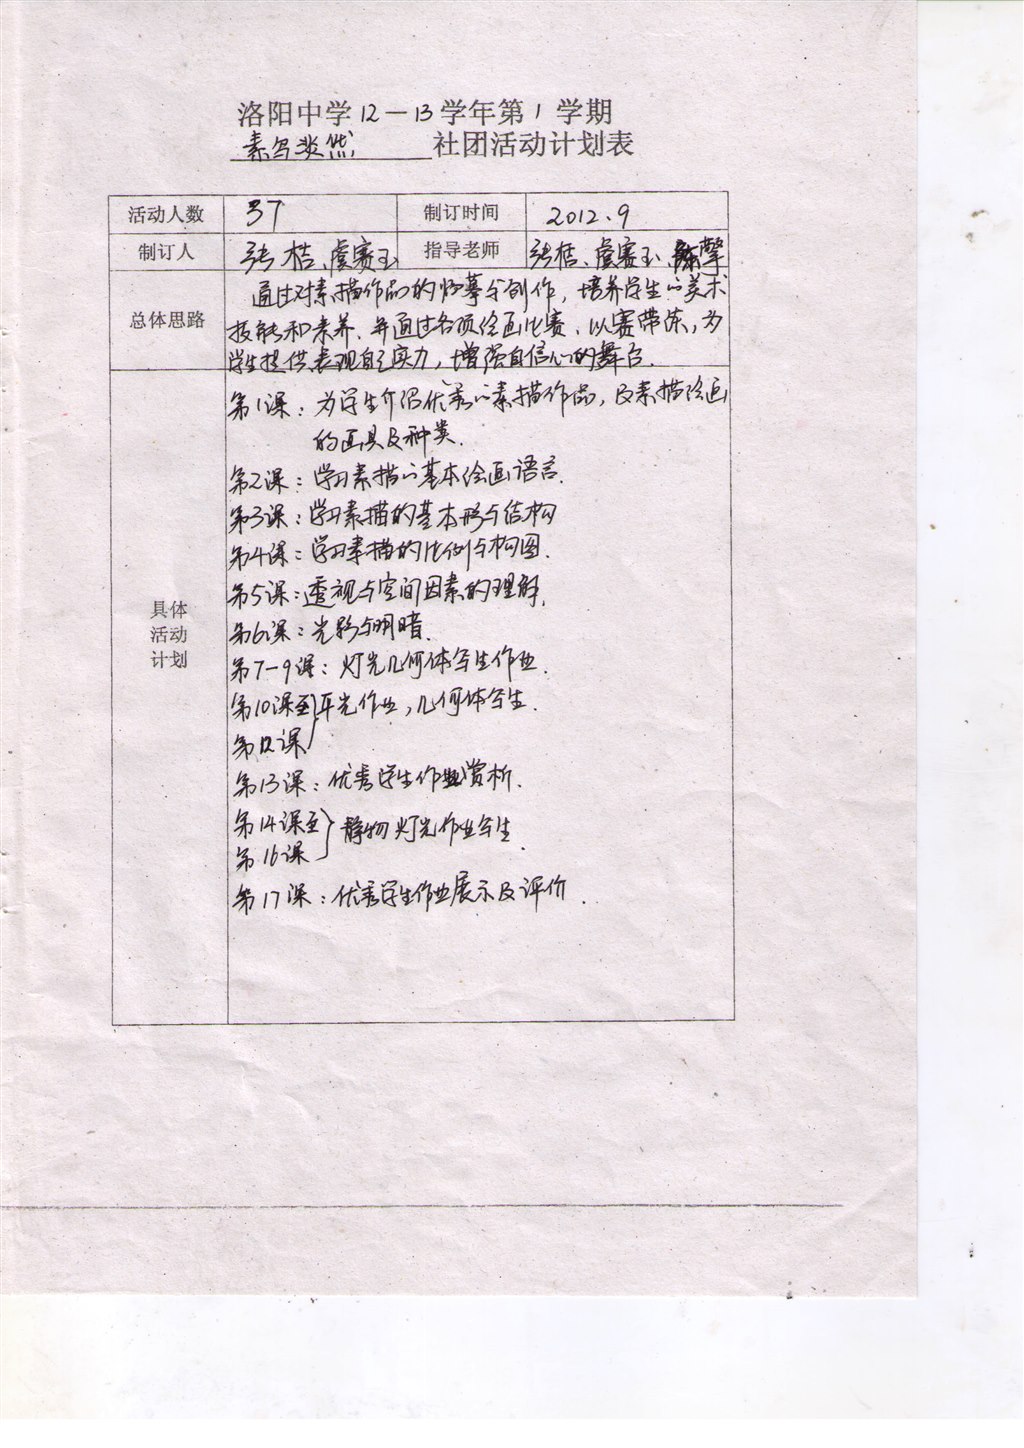 洛阳中学12-13学年第1学期
素写淡然 社团活动计划表
活动人数 37 制订时间 2012.9
制订人 张桔、虞赛玉 指导老师 张桔、虞赛玉、陈擎
总体思路
通过对素描作品的临摹与创作，培养学生的美术
技能和素养.并通过各项绘画比赛、以赛带练，为
学生提供表现自己实力，增强自信心的舞台.
具体
活动
计划
第1课：为学生介绍优秀的素描作品，及素描绘画
的画具及种类.
第2课：学习素描的基本绘画语言.
第3课：学习素描的基本形与结构
第4课：学习素描的比例与构图.
第5课：透视与空间因素的理解.
第6课：光影与明暗.
第7-9课：灯光几何体写生作业.
第10课至 平光作业，几何体写生.
第12课
第13课：优秀学生作业赏析.
第14课至 静物灯光作业写生.
第16课
第17课：优秀学生作业展示及评价.